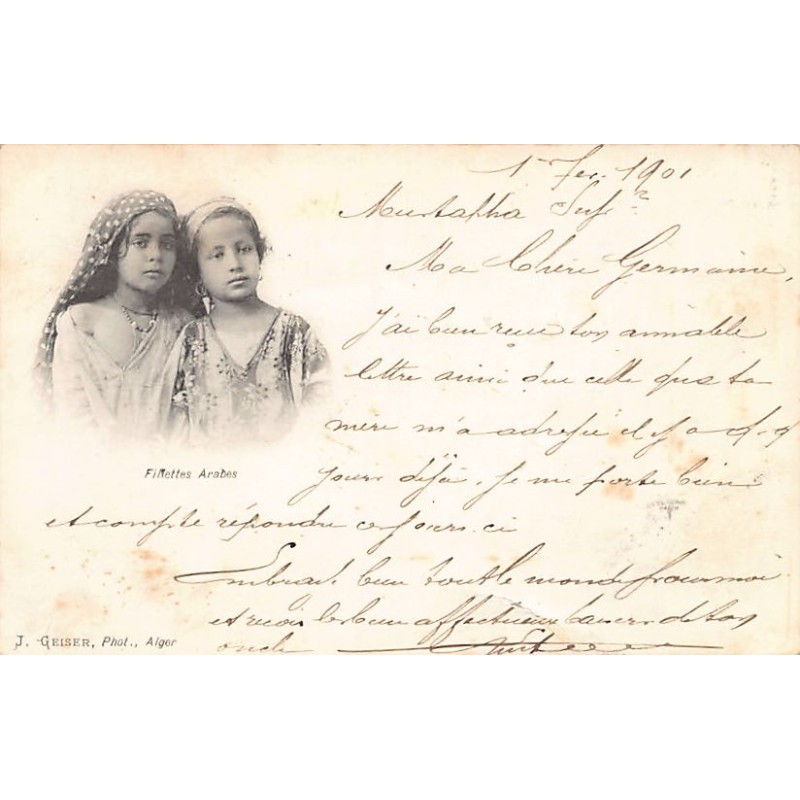 1er Fev. 1901
Mustapha Supr
Ma Chère Germaine,
J'ai bien reçu ton aimable
lettre ainsi que celle que ta
mère m'a adressée il y a q.q
jours déjà. Je me porte bien
et compte répondre ces jours-ci
Embrasse bien tout le monde pour moi
et reçois les bien affectueux baisers de ton
oncle
Fillettes Arabes
J. GEISER, Phot., Alger